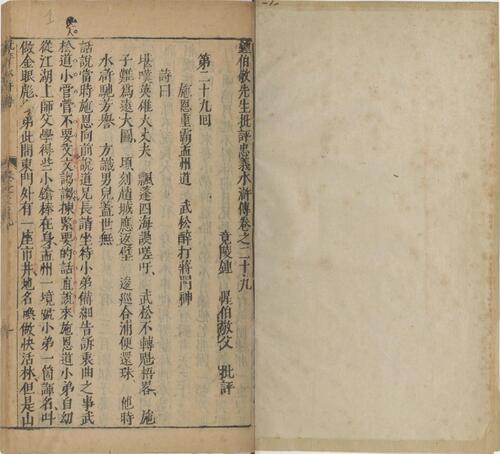 鍾伯敬先生批評忠義水滸傳卷之二十九
竟陵鍾 惺伯敬父 批評
第二十九回
施恩重霸孟州道 武松醉打蔣門神
詩曰
堪嘆英雄大丈夫 飄蓬四海謾嗟吁 武松不轉魁梧畧 施
子難爲遠大圖 頃刻趙城應返璧 逡巡合浦便還珠 他時
水滸馳芳譽 方識男兒蓋世無
話說當時施恩向前說道兄長請坐待小弟備細告訴衷曲之事武
松道小管營不要文文謅謅揀緊要的話直說來施恩道小弟自幼
從江湖上師父學得些小鎗棒在身孟州一境號小弟一箇諢名叫
做金眼彪小弟此間東門外有一座市井地名喚做快活林但是山